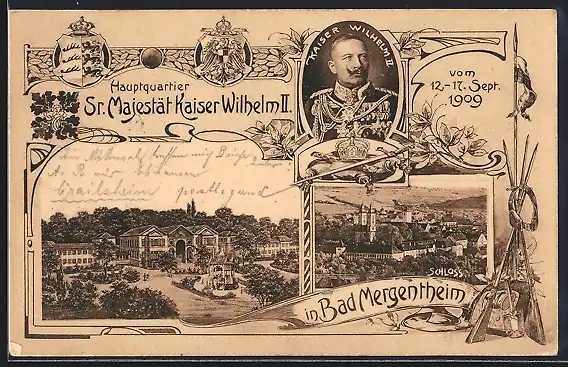 KAISER WILHELM II
Hauptquartier
Sr. Majestät Kaiser Wilhelm II.
vom
12.-17. Sept.
1909
Am
Crailsheim postlagernd.
SCHLOSS
in Bad Mergentheim